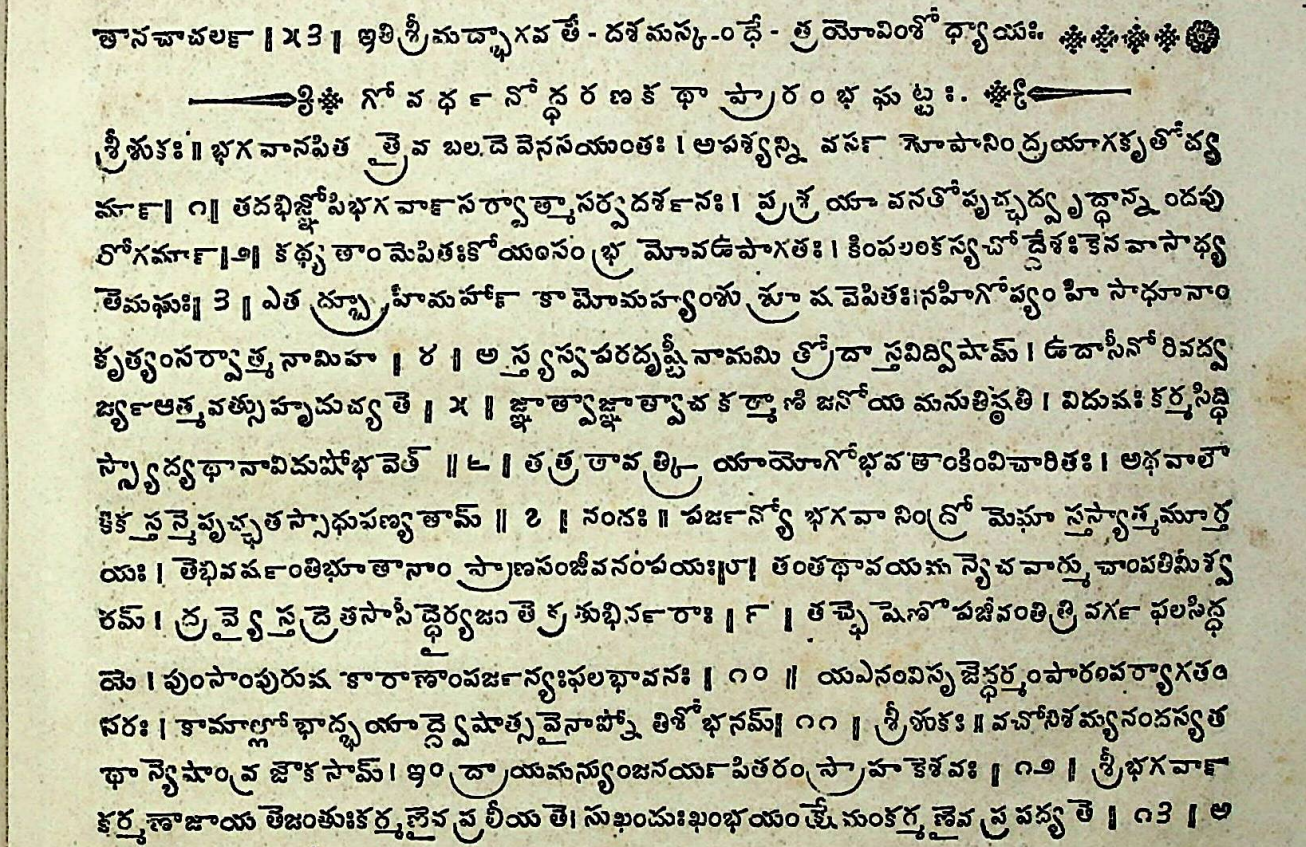 తానచాచలక౯ ॥ ౫౩ ॥ ఇతి శ్రీమద్భాగవతే - దశమస్కంధే - త్రయోవింశోధ్యాయః.
గోవధ౯నోద్ధరణకథా ప్రారంభఘట్టః.
శ్రీశుకః॥ భగవానపిత త్రైవ బలదేవేనసయుంతః । అపశ్యన్ని వస౯ గోపానింద్రయాగకృతోద్య
మా౯ ॥ ౧॥ తదభిజ్ఞోపిభగవా౯సర్వాత్మాసర్వదశ౯నః । ప్రశ్ర యా వనతోపృచ్ఛద్వృద్ధాన్నందపు
రోగమా౯ ॥౨॥ కథ్యతాం మేపితఃకోయంసంభ్ర మోవఉపాగతః । కింఫలంకస్యచోద్దేశఃకేన వాసాధ్య
తేమఖః॥ 3 ॥ ఎత ద్బ్రూహిమహా౯ కామోమహ్యంశుశ్రూ ష వేపితః।నహిగోప్యం హి సాధూనాం
కృత్యంసర్వాత్మ నామిహ ॥ ౪ ॥ అస్త్యస్వపరదృష్టీనామమి త్రోదాస్తవిద్విషామ్ । ఉదాసీనో రివద్వ
జ్య౯ఆత్మవత్సుహృదుచ్యతే ॥ ౫ ॥ జ్ఞాత్వాజ్ఞాత్వాచ కర్మాణి జనోయ మనుతిష్ఠతి । విదుషః కర్మసిద్ధి
స్స్యాద్యథానావిదుషోభవేత్ ॥ ౬ ॥ తత్ర తావత్క్రియాయోగోభవతాంకింవిచారితః । అథవాలౌ
కికస్తన్మెపృచ్ఛతస్సాధుపణ్యతామ్ ॥ ౭ ॥ నందః ॥ పజ౯న్యో భగవా నింద్రో మేఘా స్తస్యాత్మమూర్త
యః । తెభివష౯ంతిభూతానాం ప్రాణసంజీవనంపయః॥౮॥ తంతథావయమ న్యేచ వార్ముచాంపతిమీశ్వ
రమ్ । ద్రవ్యైస్తద్రెతసాసీద్ధైర్యజం తె క్రతుభిన౯రాః ॥ ౯ ॥ తచ్ఛేషేణోపజీవంతిత్రివగ౯ ఫలసిద్ధ
యె । పుంసాంపురుష కారాణాంపజ౯న్యఃఫలభావనః ॥ ౧౦ ॥ యఎనంవిసృజెద్ధర్మంపారంపర్యాగతం
నరః । కామాల్లోభాద్భయాద్ద్వెషాత్సవైనాప్నోతిశోభనమ్॥ ౧౧ ॥ శ్రీశుకః ॥ వచోనిశమ్యనందస్యత
థాన్యెషాంవ్రజౌకసామ్ । ఇంద్రాయమన్యుంజనయ౯పితరంప్రాహకెశవః ॥ ౧౨ ॥ శ్రీభగవా౯
కర్మణాజాయ తెజంతుఃకర్మణైవప్రలీయతె। సుఖందుఃఖంభయంక్షేమంకర్మణైవప్రపద్యతె ॥ ౧౩ ॥ అ